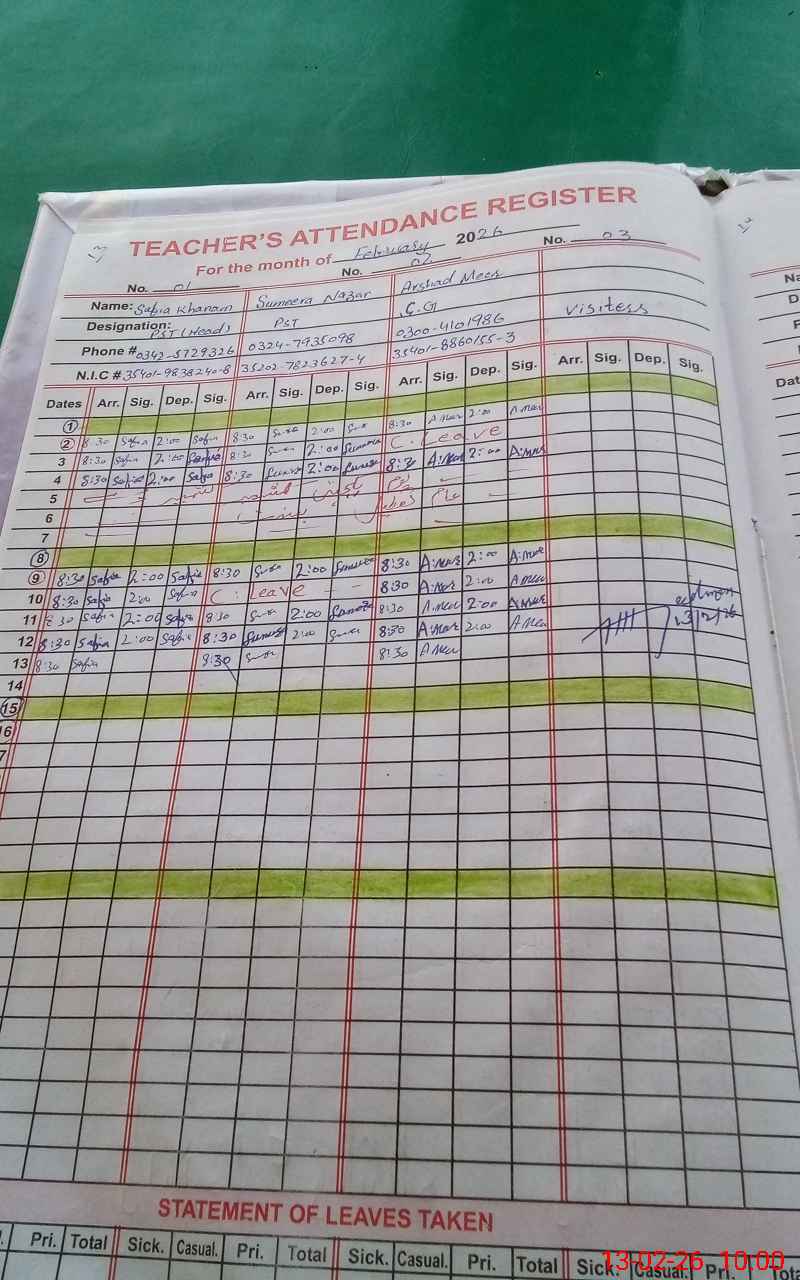 TEACHER'S ATTENDANCE REGISTER
For the month of February 2026
No. 01 No. 02 No. 03
Name: Safia Khanam Sumeera Nazar Arshad Meer
Designation: PST (Head) PST C.G visiters
Phone # 0342-5729326 0324-7935098 0300-4101986
N.I.C # 35401-9838240-8 35202-7823627-4 35401-8860155-3
Dates Arr. Sig. Dep. Sig. Arr. Sig. Dep. Sig. Arr. Sig. Dep. Sig. Arr. Sig. Dep. Sig.
1
2 8:30 Safia 2:00 Safia 8:30 2:00 8:30 A.Meer 2:00 A.Meer
3 8:30 Safia 2:00 Safia 8:30 2:00 Sumeera C. Leave
4 8:30 Safia 2:00 Safia 8:30 Sumeera 2:00 Sumeera 8:30 A.Meer 2:00 A.Meer
5
6
7
8
9 8:30 Safia 2:00 Safia 8:30 2:00 Sumeera 8:30 A.Meer 2:00 A.Meer
10 8:30 Safia 2:00 Safia C. Leave 8:30 A.Meer 2:00 A.Meer
11 8:30 Safia 2:00 Safia 8:30 2:00 Sumeera 8:30 A.Meer 2:00 A.Meer
12 8:30 Safia 2:00 Safia 8:30 Sumeera 2:00 8:30 A.Meer 2:00 A.Meer 13/2/26
13 8:30 Safia 8:30 8:30 A.Meer
14
15
16
7
STATEMENT OF LEAVES TAKEN
Pri. Total Sick. Casual. Pri. Total Sick. Casual. Pri. Total Sick. Casual. Pri. Total
13-02-26 10:00